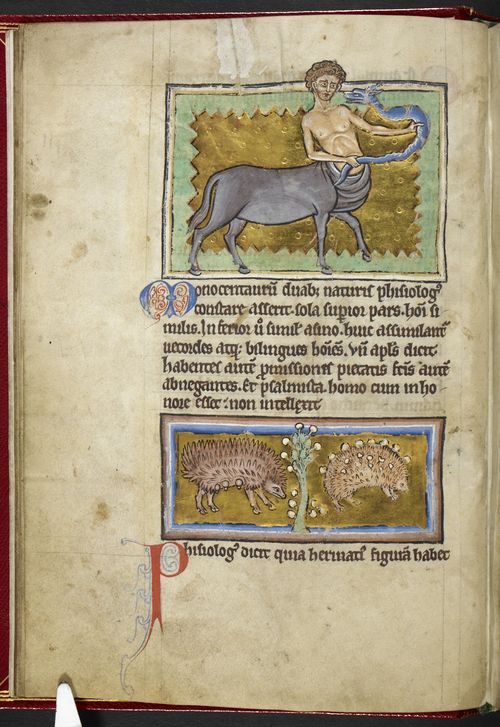 Monocentaurū duab; naturis phisiolog᾽
constare asserit. sola supior pars. hōi si
milis. Inferior ū simil' asino. huic assimilant᾽
uecordes atq; bilingues hoīes. vn̄ apl's dicit.
habentes autē pmissionē pietatis fctīs autē
abnegantes. Et psalmista. homo cum in ho
nore esset: non intellexit
Phisiolog᾽ dicit quia herinatī figurā habet